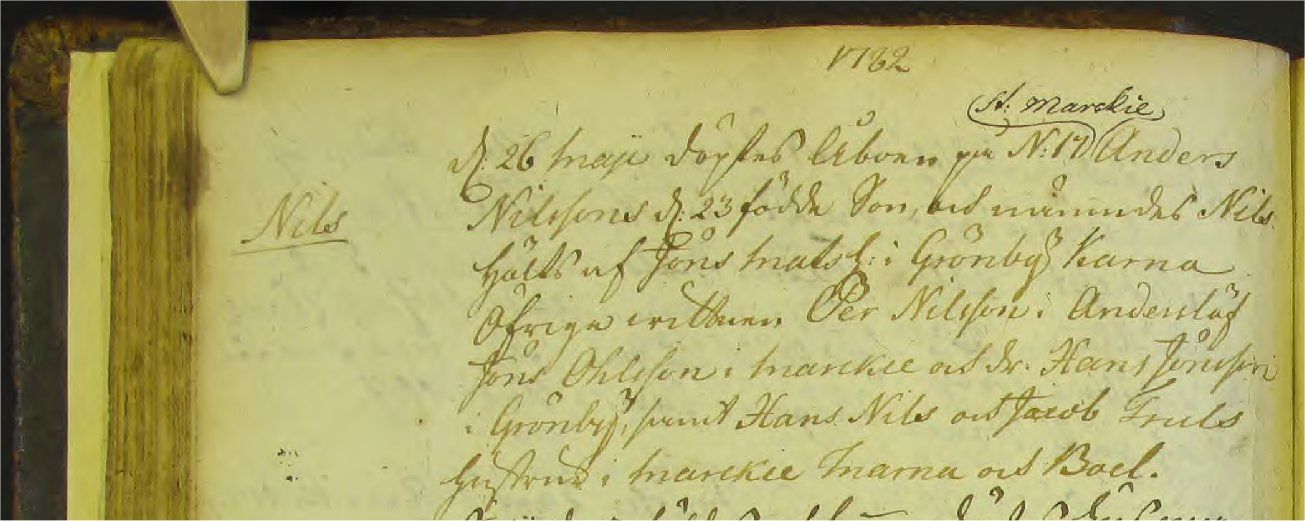 1782
St: Marckie
d: 26 Maji döptes Åboen på N:17 Anders
Nils
Nilssons d: 23 födde Son, och nämndes Nils.
hölts af Jöns Mats h: i Grönby Karna
Öfriga wittnen Per Nilsson i Anderslöf
Jöns Ohlsson i Marckie och dr. Hans Jönsson
i Grönby, samt Hans Nils och Jacob Truls
hustrur i Marckie Marna och Boel.